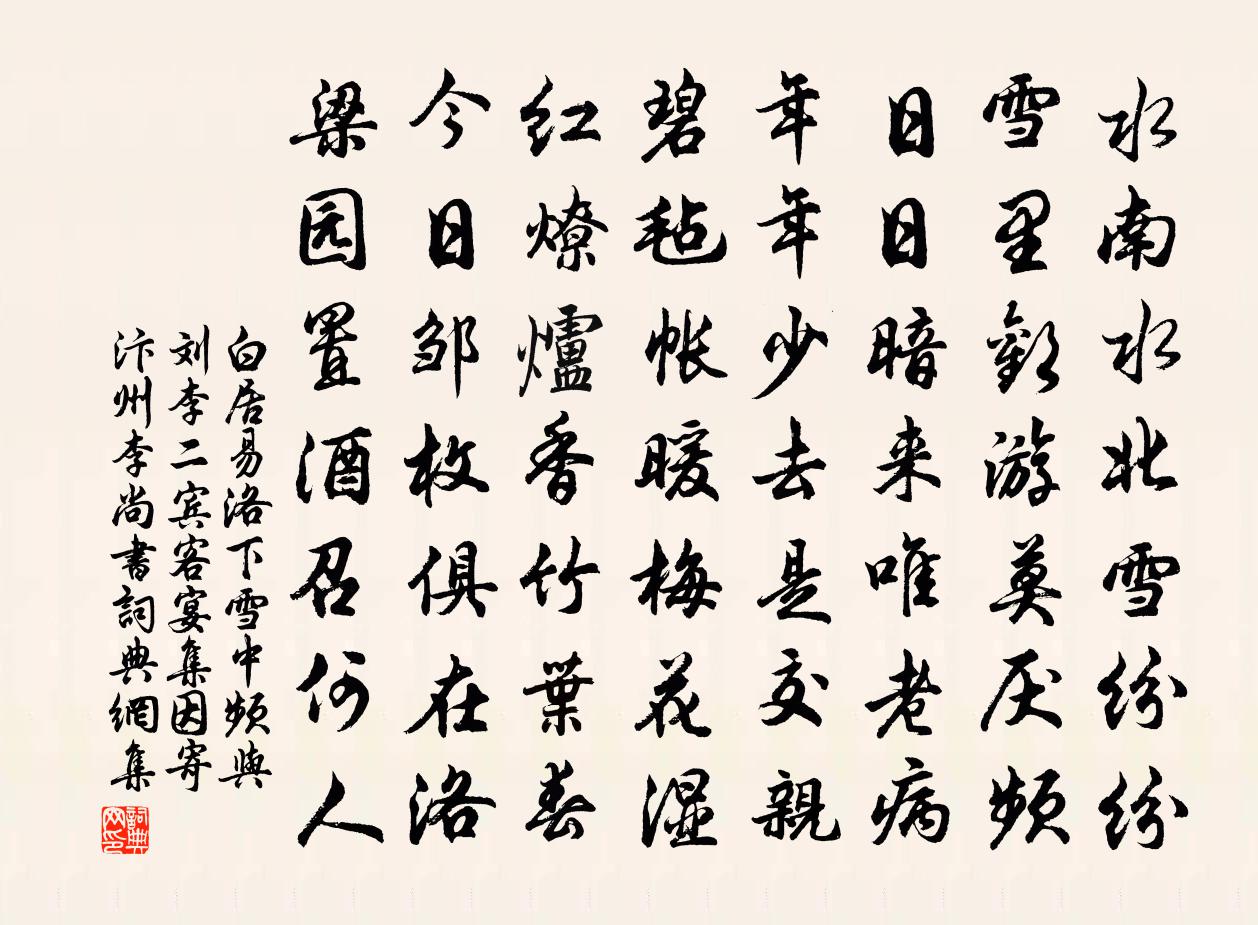 水南水北雪纷纷
雪里歡游莫厌频
日日暗来唯老病
年年少去是交親
碧毡帳暖梅花湿
红燎爐香竹葉春
今日邹枚俱在洛
梁园置酒召何人
白居易洛下雪中频與
刘李二宾客宴集因寄
汴州李尚書詞典網集
詞典
网印